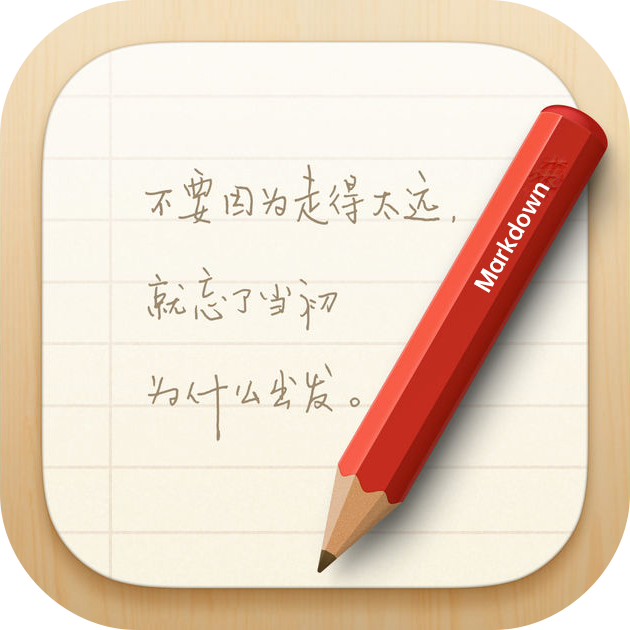 不要因为走得太远，
就忘了当初
为什么出发。
Markdown